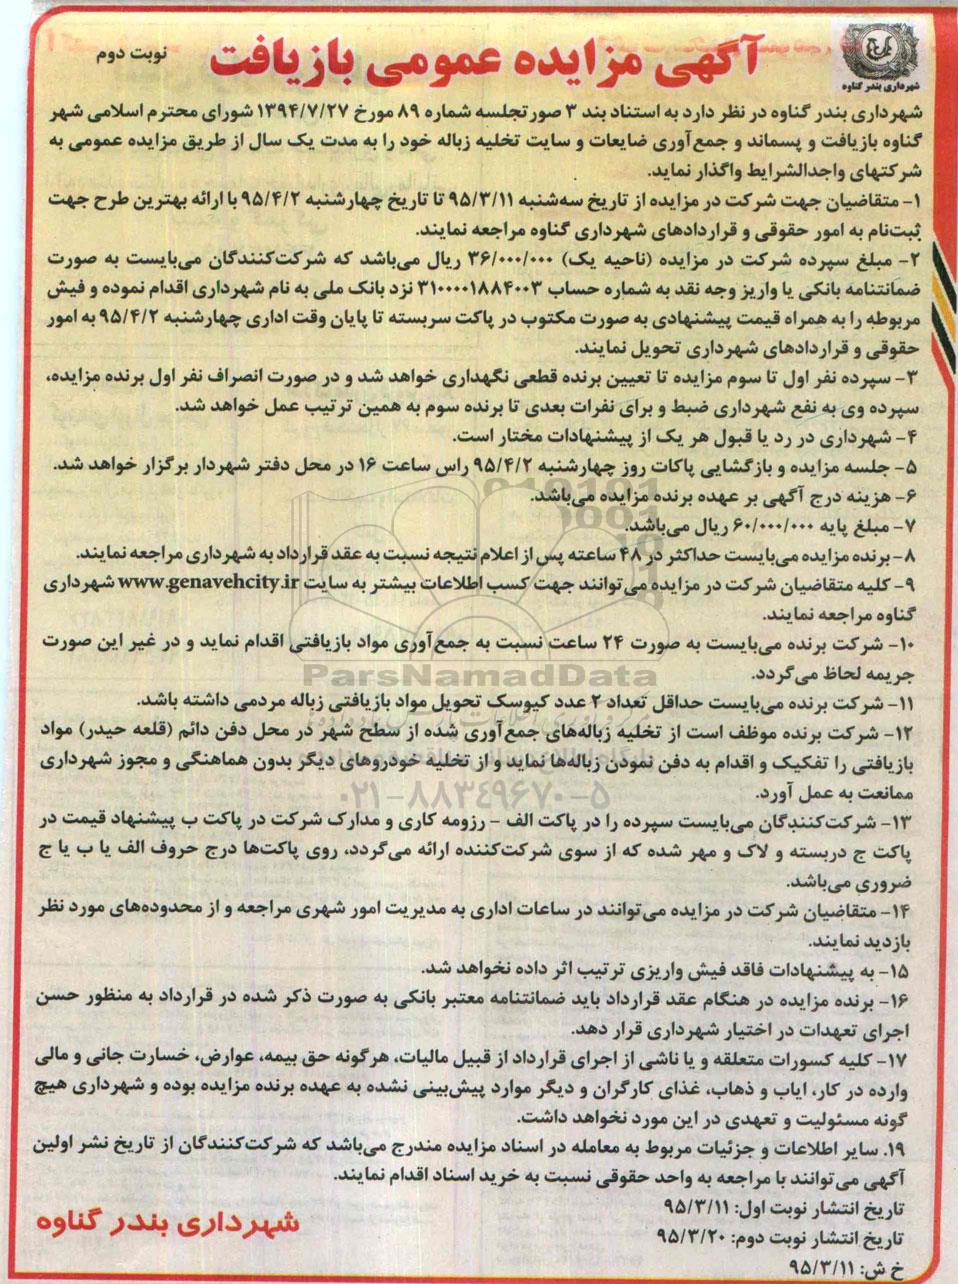 شهرداری بندر گناوه
آگهی مزایده عمومی بازیافت
نوبت دوم
شهرداری بندر گناوه در نظر دارد به استناد بند ۳ صورتجلسه شماره ۸۹ مورخ ۱۳۹۴/۷/۲۷ شورای محترم اسلامی شهر
گناوه بازیافت و پسماند و جمع‌آوری ضایعات و سایت تخلیه زباله خود را به مدت یک سال از طریق مزایده عمومی به
شرکتهای واجدالشرایط واگذار نماید.
۱- متقاضیان جهت شرکت در مزایده از تاریخ سه‌شنبه ۹۵/۳/۱۱ تا تاریخ چهارشنبه ۹۵/۴/۲ با ارائه بهترین طرح جهت
ثبت‌نام به امور حقوقی و قراردادهای شهرداری گناوه مراجعه نمایند.
۲- مبلغ سپرده شرکت در مزایده (ناحیه یک) ۳۶/۰۰۰/۰۰۰ ریال می‌باشد که شرکت‌کنندگان می‌بایست به صورت
ضمانتنامه بانکی یا واریز وجه نقد به شماره حساب ۳۱۰۰۰۰۱۸۸۴۰۰۳ نزد بانک ملی به نام شهرداری اقدام نموده و فیش
مربوطه را به همراه قیمت پیشنهادی به صورت مکتوب در پاکت سربسته تا پایان وقت اداری چهارشنبه ۹۵/۴/۲ به امور
حقوقی و قراردادهای شهرداری تحویل نمایند.
۳- سپرده نفر اول تا سوم مزایده تا تعیین برنده قطعی نگهداری خواهد شد و در صورت انصراف نفر اول برنده مزایده،
سپرده وی به نفع شهرداری ضبط و برای نفرات بعدی تا برنده سوم به همین ترتیب عمل خواهد شد.
۴- شهرداری در رد یا قبول هر یک از پیشنهادات مختار است.
۵- جلسه مزایده و بازگشایی پاکات روز چهارشنبه ۹۵/۴/۲ راس ساعت ۱۶ در محل دفتر شهردار برگزار خواهد شد.
۶- هزینه درج آگهی بر عهده برنده مزایده می‌باشد.
۷- مبلغ پایه ۶۰/۰۰۰/۰۰۰ ریال می‌باشد.
۸- برنده مزایده می‌بایست حداکثر در ۴۸ ساعته پس از اعلام نتیجه نسبت به عقد قرارداد به شهرداری مراجعه نمایند.
۹- کلیه متقاضیان شرکت در مزایده می‌توانند جهت کسب اطلاعات بیشتر به سایت www.genavehcity.ir شهرداری
گناوه مراجعه نمایند.
۱۰- شرکت برنده می‌بایست به صورت ۲۴ ساعت نسبت به جمع‌آوری مواد بازیافتی اقدام نماید و در غیر این صورت
جریمه لحاظ می‌گردد.
ParsNamadData
۱۱- شرکت برنده می‌بایست حداقل تعداد ۲ عدد کیوسک تحویل مواد بازیافتی زباله مردمی داشته باشد.
۱۲- شرکت برنده موظف است از تخلیه زباله‌های جمع‌آوری شده از سطح شهر در محل دفن دائم (قلعه حیدر) مواد
بازیافتی را تفکیک و اقدام به دفن نمودن زباله‌ها نماید و از تخلیه خودروهای دیگر بدون هماهنگی و مجوز شهرداری
ممانعت به عمل آورد.
۰۲۱-۸۸۳۴۹۶۷۰-۵
۱۳- شرکت‌کنندگان می‌بایست سپرده را در پاکت الف - رزومه کاری و مدارک شرکت در پاکت ب پیشنهاد قیمت در
پاکت ج دربسته و لاک و مهر شده که از سوی شرکت‌کننده ارائه می‌گردد، روی پاکت‌ها درج حروف الف یا ب یا ج
ضروری می‌باشد.
۱۴- متقاضیان شرکت در مزایده می‌توانند در ساعات اداری به مدیریت امور شهری مراجعه و از محدوده‌های مورد نظر
بازدید نمایند.
۱۵- به پیشنهادات فاقد فیش واریزی ترتیب اثر داده نخواهد شد.
۱۶- برنده مزایده در هنگام عقد قرارداد باید ضمانتنامه معتبر بانکی به صورت ذکر شده در قرارداد به منظور حسن
اجرای تعهدات در اختیار شهرداری قرار دهد.
۱۷- کلیه کسورات متعلقه و یا ناشی از اجرای قرارداد از قبیل مالیات، هرگونه حق بیمه، عوارض، خسارت جانی و مالی
وارده در کار، ایاب و ذهاب، غذای کارگران و دیگر موارد پیش‌بینی نشده به عهده برنده مزایده بوده و شهرداری هیچ
گونه مسئولیت و تعهدی در این مورد نخواهد داشت.
۱۹. سایر اطلاعات و جزئیات مربوط به معامله در اسناد مزایده مندرج می‌باشد که شرکت‌کنندگان از تاریخ نشر اولین
آگهی می‌توانند با مراجعه به واحد حقوقی نسبت به خرید اسناد اقدام نمایند.
تاریخ انتشار نوبت اول: ۹۵/۳/۱۱
تاریخ انتشار نوبت دوم: ۹۵/۳/۲۰
خ ش: ۹۵/۳/۱۱
شهرداری بندر گناوه